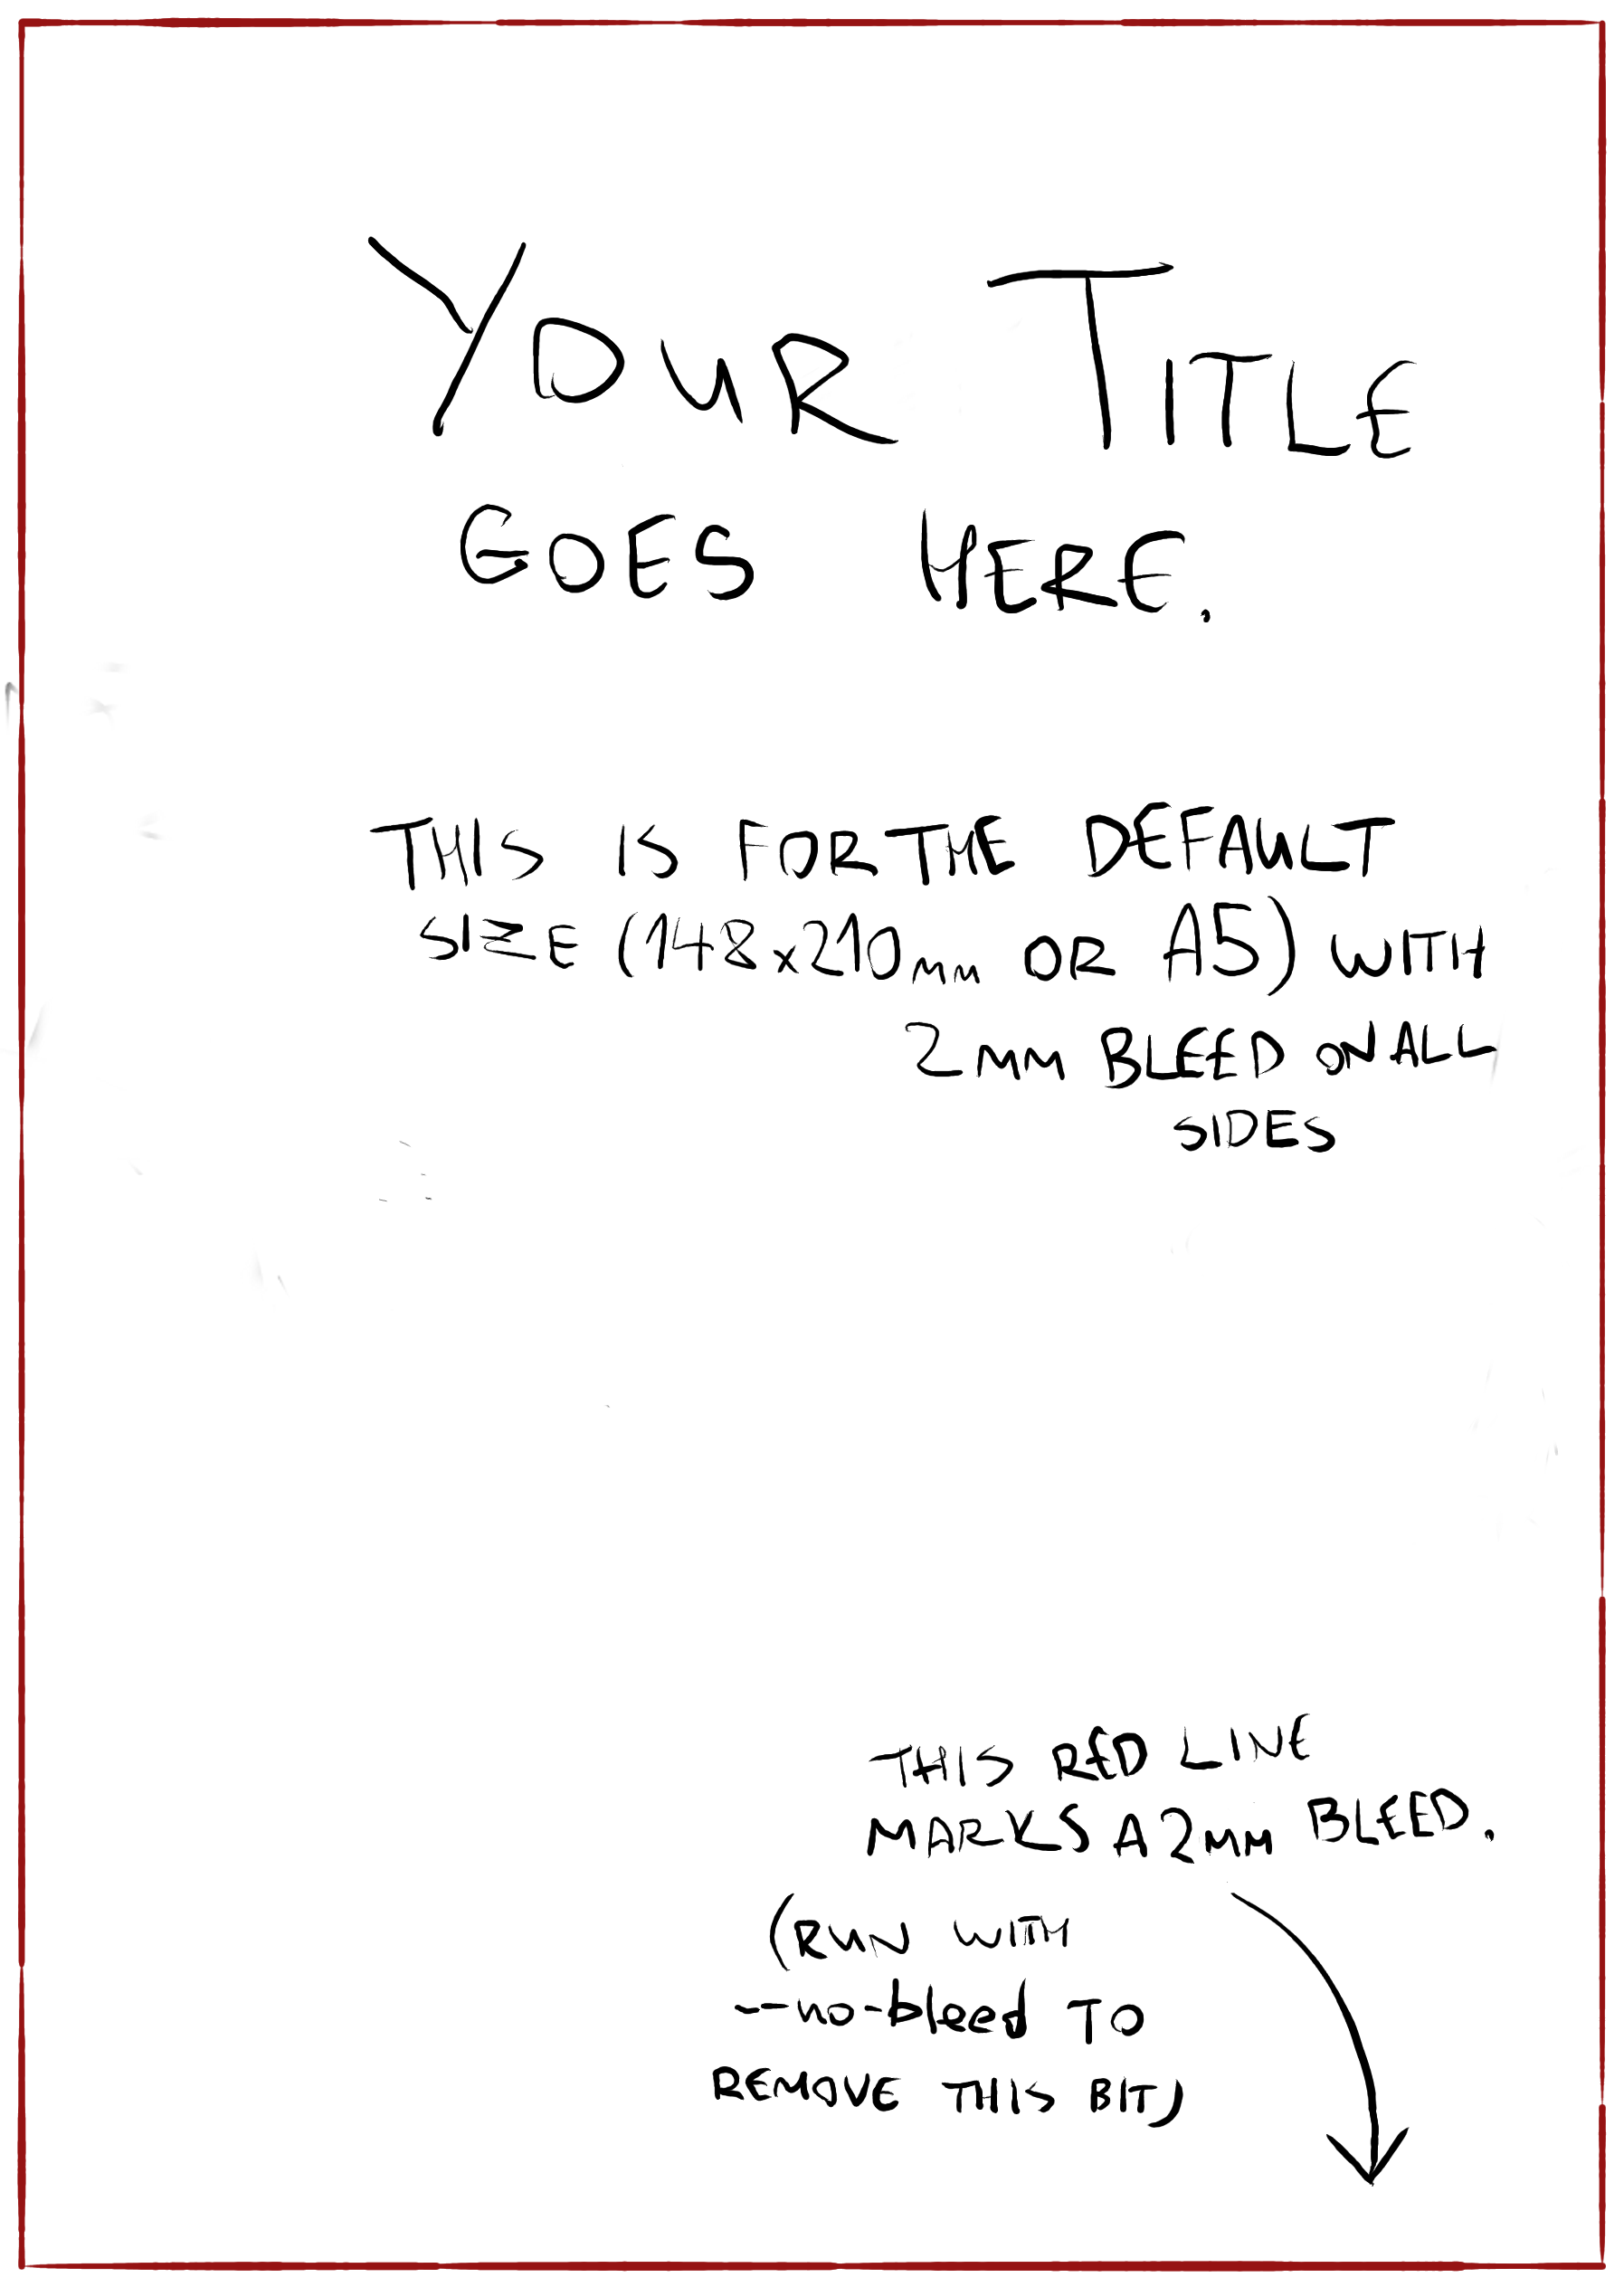 YOUR TITLE
GOES HERE.
THIS IS FOR THE DEFAULT
SIZE (148x210mm OR A5) WITH
2mm BLEED ON ALL
SIDES
THIS RED LINE
MARKS A 2mm BLEED.
(RUN WITH
--no-bleed TO
REMOVE THIS BIT)